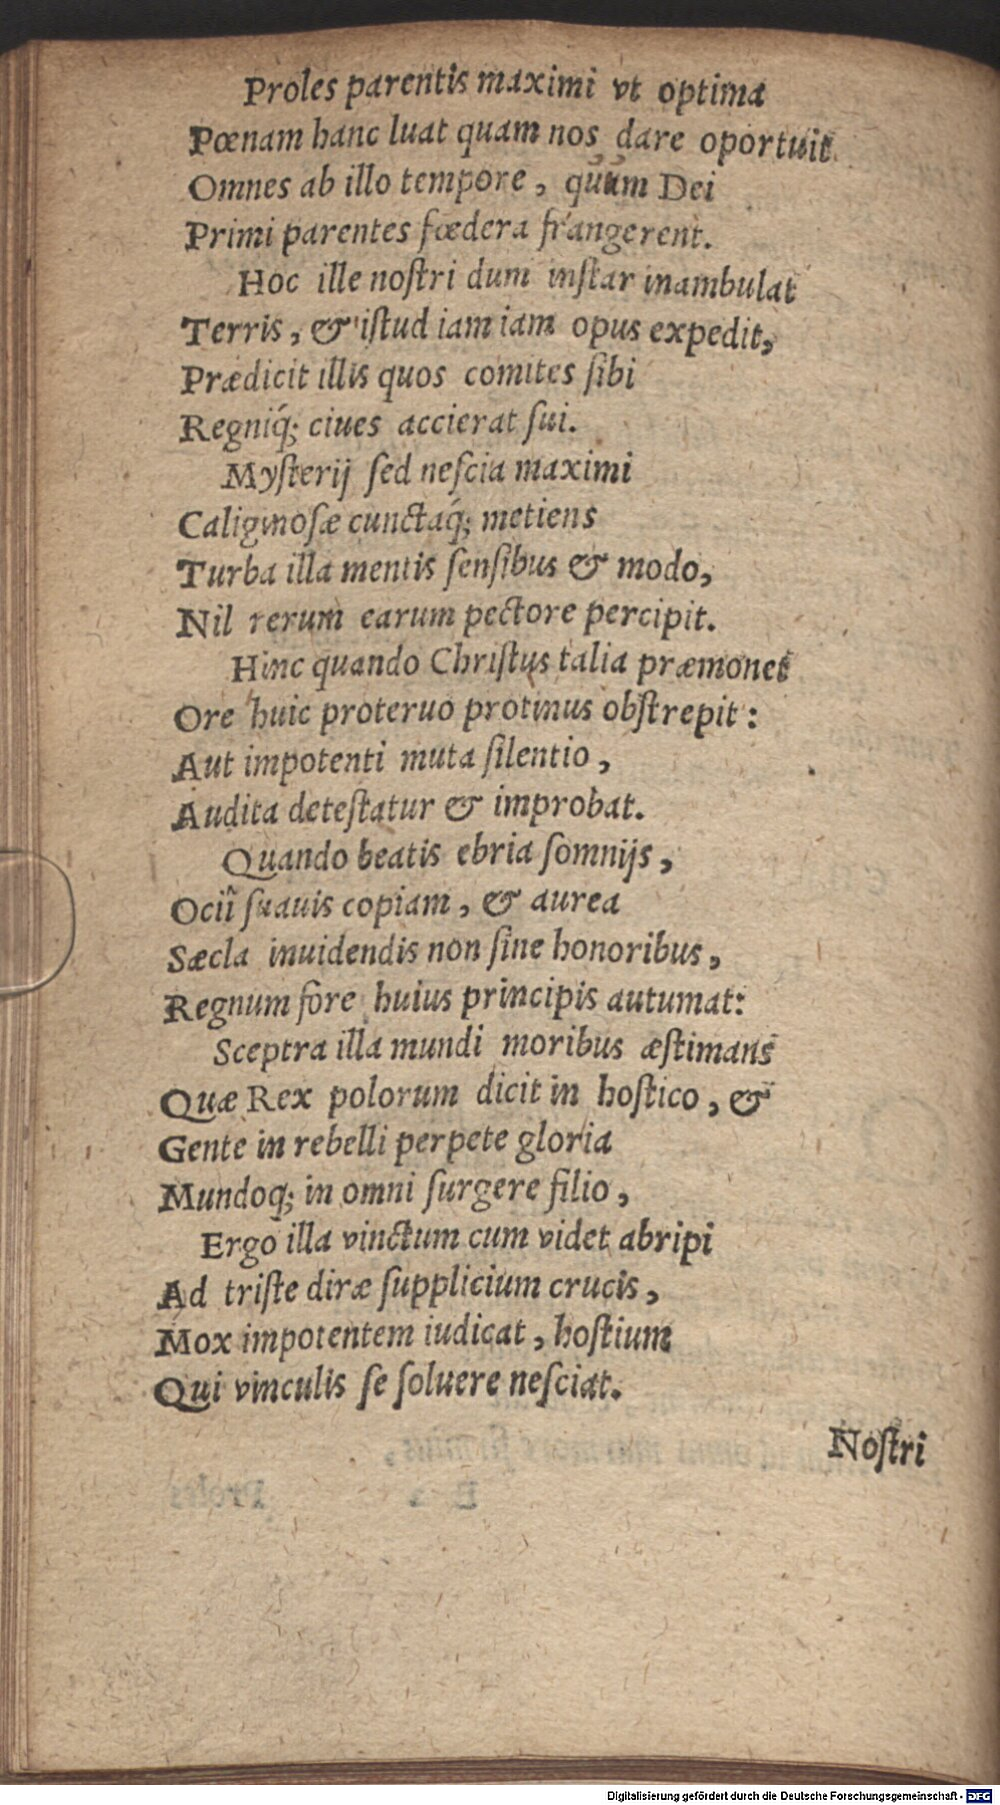 Proles parentis maximi vt optima
Pœnam hanc luat quam nos dare oportuit
Omnes ab illo tempore, quum Dei
Primi parentes fœdera frangerent.
Hoc ille nostri dum instar inambulat
Terris, & istud iam iam opus expedit,
Prædicit illis quos comites sibi
Regniq́; ciues accierat sui.
Mysterij sed nescia maximi
Caliginosæ cunctaq́; metiens
Turba illa mentis sensibus & modo,
Nil rerum earum pectore percipit.
Hinc quando Christus talia præmonet
Ore huic proteruo protinus obstrepit:
Aut impotenti muta silentio,
Audita detestatur & improbat.
Quando beatis ebria somnijs,
Ociî suauis copiam, & aurea
Sæcla inuidendis non sine honoribus,
Regnum fore huius principis autumat:
Sceptra illa mundi moribus æstimans
Quæ Rex polorum dicit in hostico, &
Gente in rebelli perpete gloria
Mundoq; in omni surgere filio,
Ergo illa vinctum cum videt abripi
Ad triste diræ supplicium crucis,
Mox impotentem iudicat, hostium
Qui vinculis se soluere nesciat.
Nostri
Digitalisierung gefördert durch die Deutsche Forschungsgemeinschaft - DFG